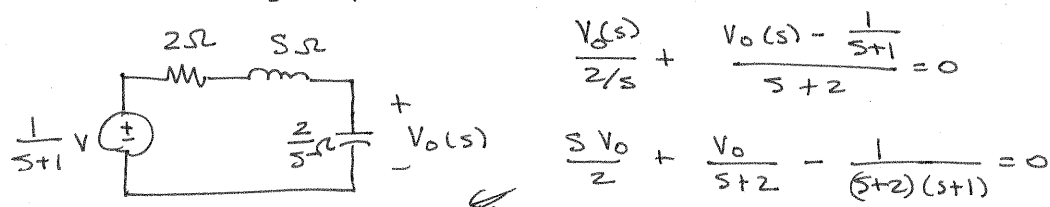 2Ω SΩ
1/(S+1) V
+
-
2/S Ω
+
V₀(s)
-
V₀(s)/(2/s) + (V₀(s) - 1/(S+1))/(S+2) = 0
S V₀/2 + V₀/(S+2) - 1/((S+2)(S+1)) = 0